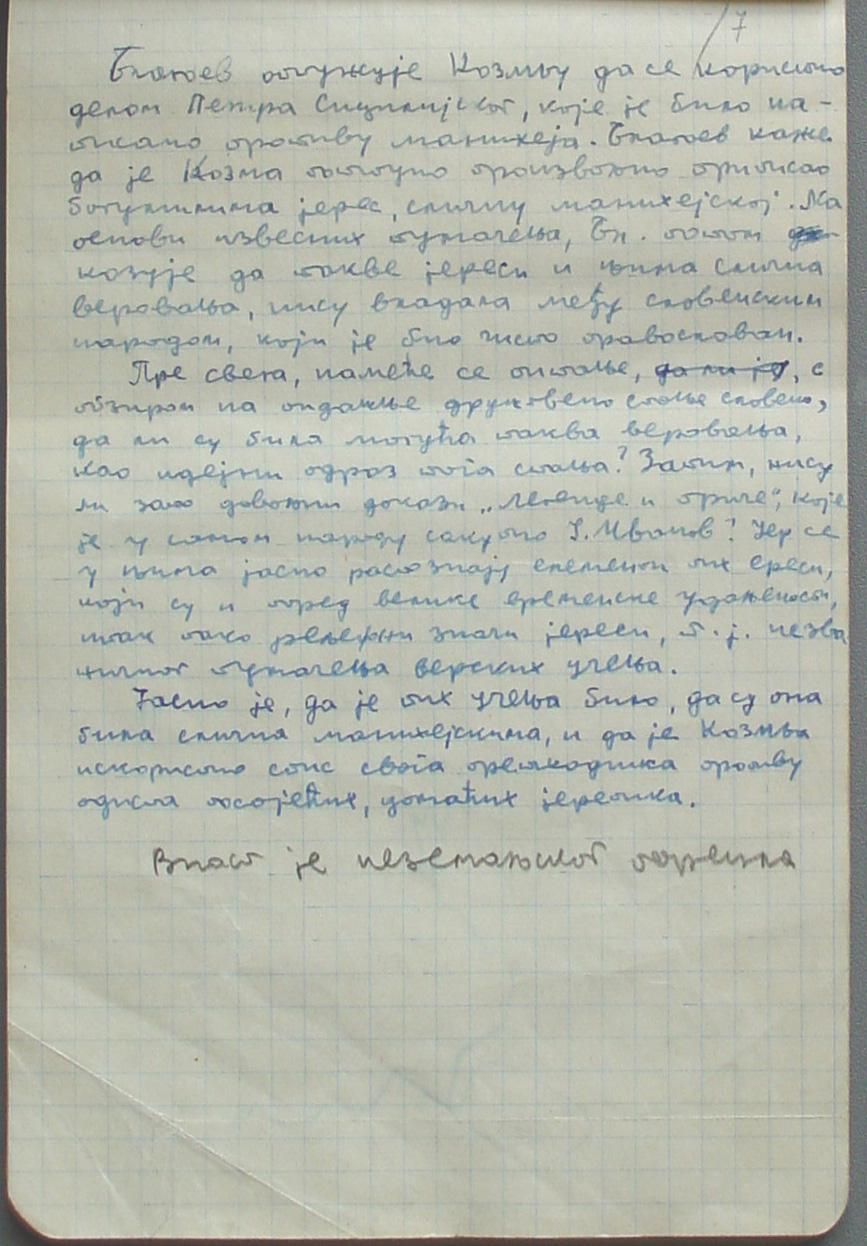 7
Благоев оптужује Козму да се користио
делом Петра Сицилијског, које је било на-
писано противу манихеја. Благоев каже
да је Козма потпуно произвољно приписао
богумилима јерес, сличну манихејској. На
основи извесних тумачења, Бл. потом
казује да такве јереси и њима слична
веровања, нису владала међу словенским
народом, који је био чисто православан.
Пре свега, намеће се питање, да ли је, с
обзиром на ондашње друштвено стање словено,
да ли су била могућа таква веровања,
као идејни одраз тога стања? Затим, нису
ли зато довољни докази „легенде и приче“, које
је у самом народу сакупио Ј. Иванов? Јер се
у њима јасно распознају елементи тих ереси,
који су и поред велике временске удаљености,
ипак тако рељефни знаци јереси, т.ј. незва
ничног тумачења верских учења.
Јасно је, да је тих учења било, да су она
била слична манихејскима, и да је Козма
искористио спис свога претходника противу
одиста постојећих, домаћих јеретика.
Власт је неземаљског порекла